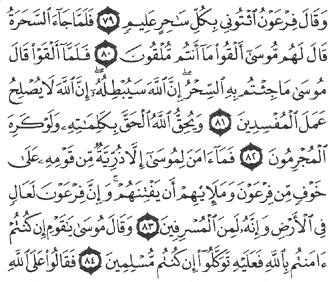 وَقَالَ فِرْعَوْنُ ٱئْتُونِى بِكُلِّ سَٰحِرٍ عَلِيمٍ ٧٩ فَلَمَّا جَآءَ ٱلسَّحَرَةُ
قَالَ لَهُم مُّوسَىٰٓ أَلْقُوا۟ مَآ أَنتُم مُّلْقُونَ ٨٠ فَلَمَّآ أَلْقَوْا۟ قَالَ
مُوسَىٰ مَا جِئْتُم بِهِ ٱلسِّحْرُ ۖ إِنَّ ٱللَّهَ سَيُبْطِلُهُۥٓ ۖ إِنَّ ٱللَّهَ لَا يُصْلِحُ
عَمَلَ ٱلْمُفْسِدِينَ ٨١ وَيُحِقُّ ٱللَّهُ ٱلْحَقَّ بِكَلِمَٰتِهِۦ وَلَوْ كَرِهَ
ٱلْمُجْرِمُونَ ٨٢ فَمَآ ءَامَنَ لِمُوسَىٰٓ إِلَّا ذُرِّيَّةٌ مِّن قَوْمِهِۦ عَلَىٰ
خَوْفٍ مِّن فِرْعَوْنَ وَمَلَإِي۟هِمْ أَن يَفْتِنَهُمْ ۚ وَإِنَّ فِرْعَوْنَ لَعَالٍ
فِى ٱلْأَرْضِ وَإِنَّهُۥ لَمِنَ ٱلْمُسْرِفِينَ ٨٣ وَقَالَ مُوسَىٰ يَٰقَوْمِ إِن كُنتُمْ
ءَامَنتُم بِٱللَّهِ فَعَلَيْهِ تَوَكَّلُوٓا۟ إِن كُنتُم مُّسْلِمِينَ ٨٤ فَقَالُوا۟ عَلَى ٱللَّهِ